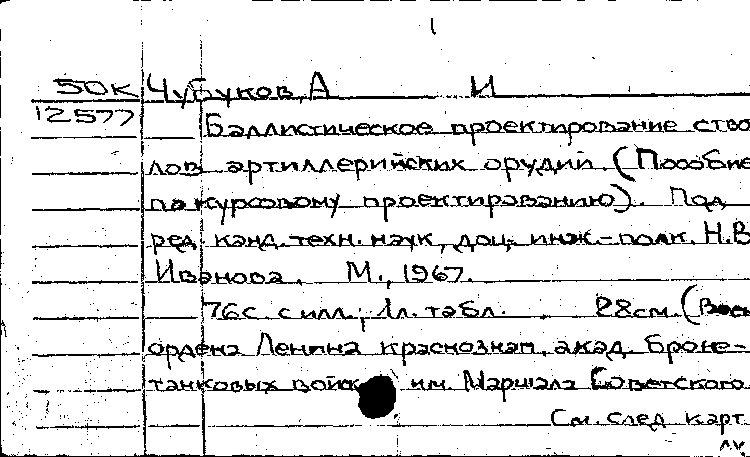 50К Чубуков, А И
12577
Баллистическое проектирование ство
лов артиллерийских орудий. (Пособие
по курсовому проектированию). Под
ред. канд. техн. наук, доц. инж.-полк. Н.В
Иванова. М., 1967.
76с. с илл.; 1л. табл. 28см. (Воен
ордена Ленина краснознам. акад. броне-
танковых войск им. Маршала Советского
См. след карт.